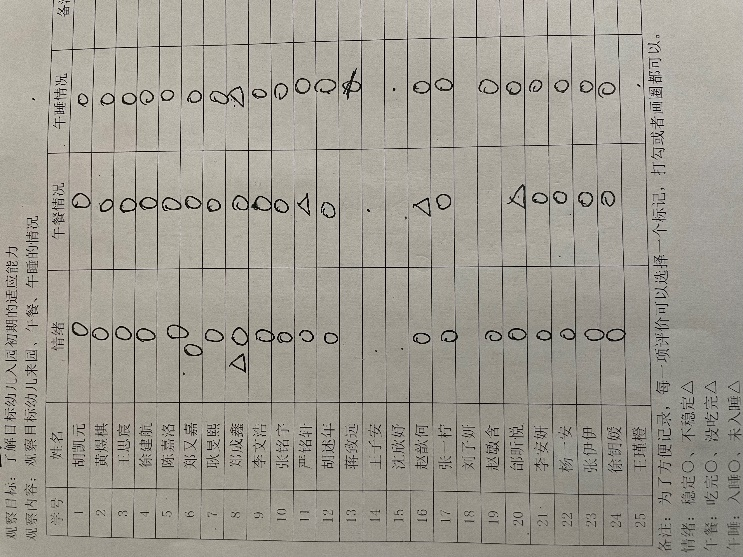 观察目标：了解目标幼儿入园初期的适应能力
观察内容：观察目标幼儿来园、午餐、午睡的情况
学号 姓名 情绪 午餐情况 午睡情况 备注
1 胡凯元 ○ ○ ○
2 黄煜棋 ○ ○ ○
3 王思宸 ○ ○ ○
4 徐建航 ○ ○ ○
5 陈嘉洛 ○ ○ ○
6 郑又嘉 ○ ○ ○
7 耿旻熙 ○ ○ ○
8 郑成鑫 △ ○ ○ △
9 李文浩 ○ ○ ○
10 张铭宇 ○ ○ ○
11 严铭轩 ○ △ ○
12 胡述年 ○ ○ ○
13 蒋致远
14 王子安
15 沈欣妤
16 赵歆何 ○ △ ○
17 张一柠 ○ ○ ○
18 刘子妍
19 赵敏含 ○ ○
20 邰昕悦 ○ △ ○
21 李安妍 ○ ○ ○
22 杨一安 ○ ○ ○
23 张伊伊 ○ ○ ○
24 徐钥媛 ○ ○ ○
25 王瑾橙
备注：为了方便记录，每一项评价可以选择一个标记，打勾或者画圈都可以。
情绪：稳定○、不稳定△
午餐：吃完○、没吃完△
午睡：入睡○、未入睡△